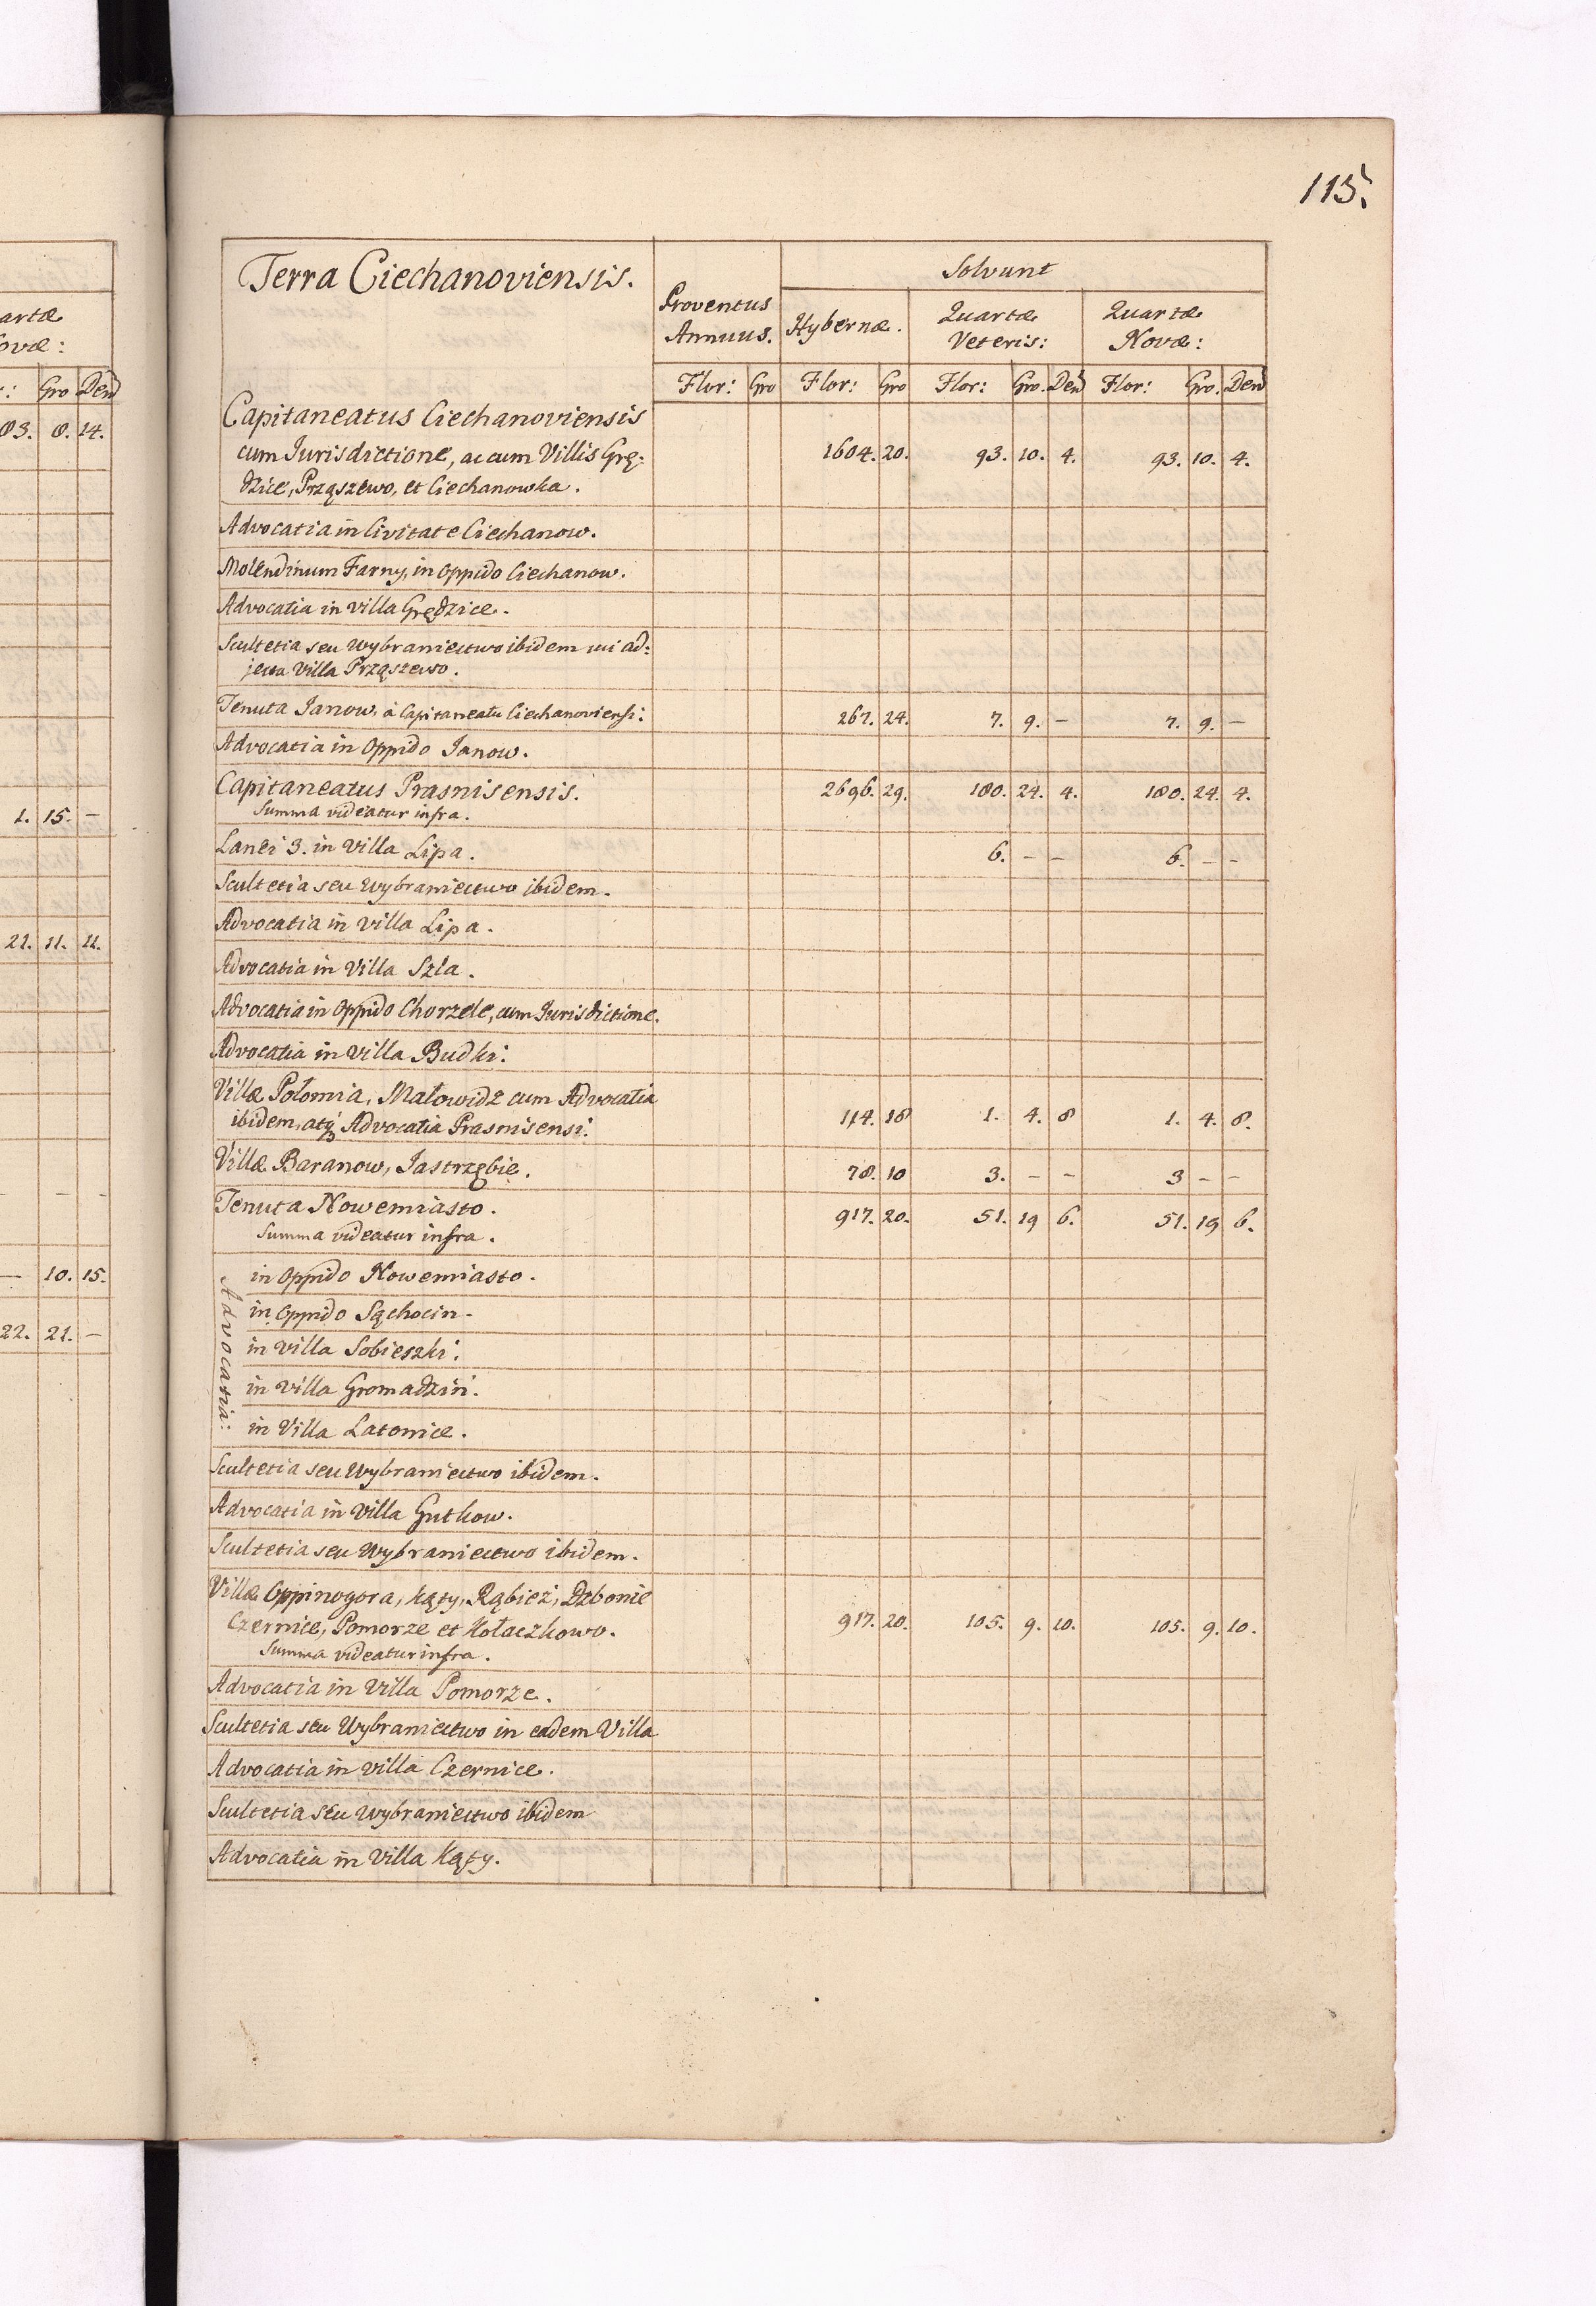 115.
artæ
ovæ:
: Gro Den
03. 8. 14.
1. 15. –
21. 11. 11.
– – –
— 10. 15.
22. 21. –
Terra Ciechanoviensis.
Proventus Annuus.
Solvunt
Hybernæ.
Quartæ Veteris:
Quartæ Novæ:
Flor: Gro Flor: Gro Flor: Gro. Den Flor: Gro. Den
Capitaneatus Ciechanoviensis
cum Jurisdictione, ac cum Villis Grę= 1604. 20. 93. 10. 4. 93. 10. 4.
dzice, Prząszewo, et Ciechanowka.
Advocatia in Civitate Ciechanow.
Molendinum Farny, in Oppido Ciechanow.
Advocatia in Villa Grędzice.
Scultetia seu Wybraniectwo ibidem cui ad=
jecta Villa Prząszewo.
Tenuta Janow, à Capitaneatu Ciechanoviensi: 267. 24. 7. 9. – 7. 9. –
Advocatia in Oppido Janow.
Capitaneatus Prasnisensis. 2696. 29. 180. 24. 4. 180. 24. 4.
Summa videatur infra.
Lanei 3. in Villa Lipa. 6. – – 6. – –
Scultetia seu Wybraniectwo ibidem.
Advocatia in Villa Lipa.
Advocatia in Villa Szla.
Advocatia in Oppido Chorzele, cum Jurisdictione.
Advocatia in Villa Budki.
Villæ Połomia, Małowidz cum Advocatia
ibidem, atq Advocatia Prasnisensi. 114. 18 1. 4. 8 1. 4. 8.
Villæ Baranow, Jastrzębie. 78. 10 3. – – 3 – –
Tenuta Nowemiasto. 917. 20. 51. 19 6. 51. 19 6.
Summa videatur infra.
Advocatia:
in Oppido Nowemiasto.
in Oppido Sąchocin.
in Villa Sobieszki.
in Villa Gromadzin.
in Villa Latonice.
Scultetia seu Wybraniectwo ibidem.
Advocatia in Villa Gutkow.
Scultetia seu Wybraniectwo ibidem.
Villæ Oppinogora, Kąty, Rąbież, Dzbonie
Czernice, Pomorze et Kołaczkowo. 917. 20. 105. 9. 10. 105. 9. 10.
Summa videatur infra.
Advocatia in Villa Pomorze.
Scultetia seu Wybraniectwo in eadem Villa
Advocatia in Villa Czernice.
Scultetia seu Wybraniectwo ibidem
Advocatia in Villa Kąty.